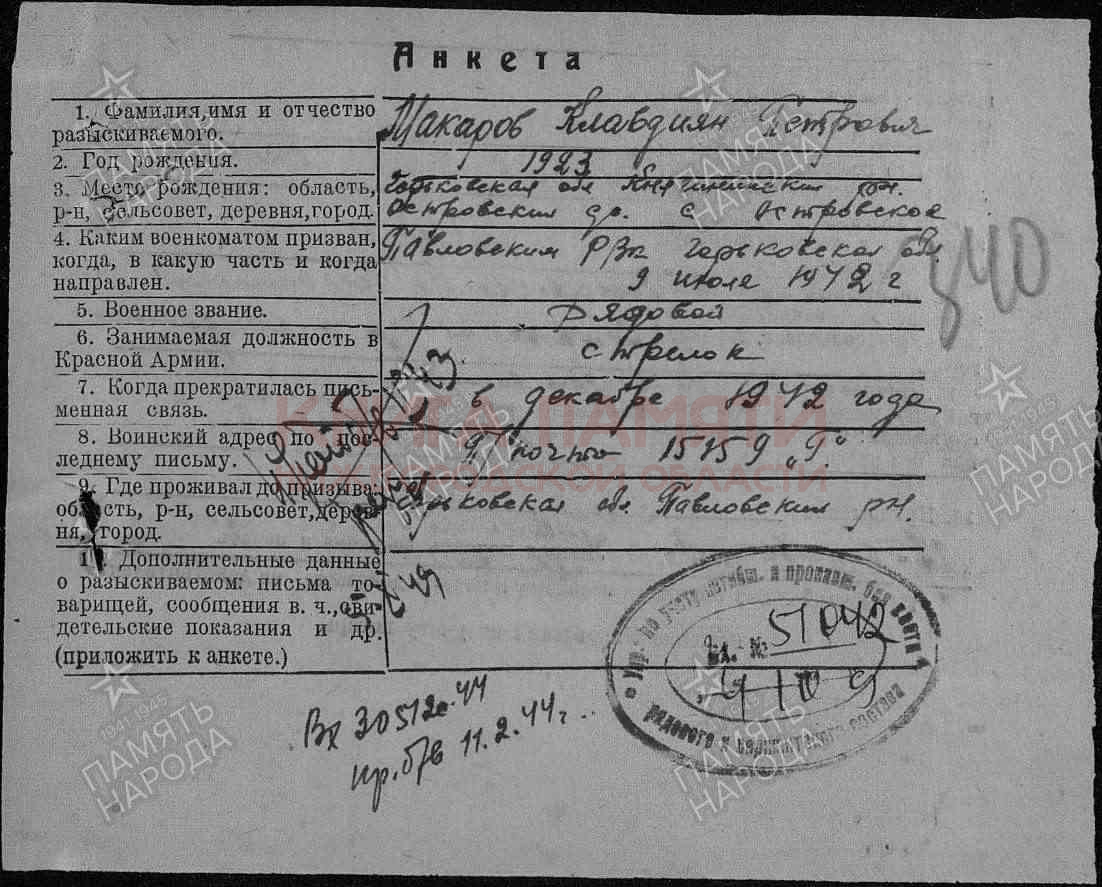 Анкета
1. Фамилия, имя и отчество
разыскиваемого.
Макаров Клавдиян Петрович
2. Год рождения.
1923
3. Место рождения: область,
р-н, сельсовет, деревня, город.
Горьковская обл Княгининский рн.
Островский с. Островское
4. Каким военкоматом призван,
когда, в какую часть и когда
направлен.
Павловским РВК Горьковская обл.
9 июля 1942 г
5. Военное звание.
Рядовой
6. Занимаемая должность в
Красной Армии.
стрелок
7. Когда прекратилась пись-
менная связь.
в декабре 1942 года
8. Воинский адрес по пос-
леднему письму.
П. почта 1515 9 „Г"
9. Где проживал до призыва:
область, р-н, сельсовет, дерев-
ня, город.
Горьковская обл. Павловский рн.
10. Дополнительные данные
о разыскиваемом: письма то-
варищей, сообщения в. ч., сви-
детельские показания и др.
(приложить к анкете.)
840
Вх 30512с-44
пр. б/в 11.2.44г.
Упр. по учету погибш. и пропавш. без вести
рядового и сержантского состава
вх. № 51042
4109
КНИГА ПАМЯТИ
НИЖЕГОРОДСКОЙ ОБЛАСТИ
ПАМЯТЬ
НАРОДА
1941-1945
ПАМЯТЬ
НАРОДА
1941-1945
ПАМЯТЬ
НАРОДА
1941-1945
ПАМЯТЬ
НАРОДА